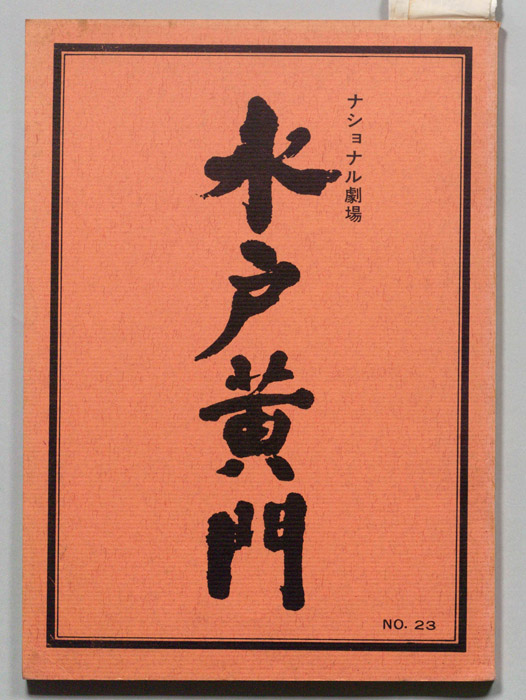 ナショナル劇場
水戸黄門
NO. 23